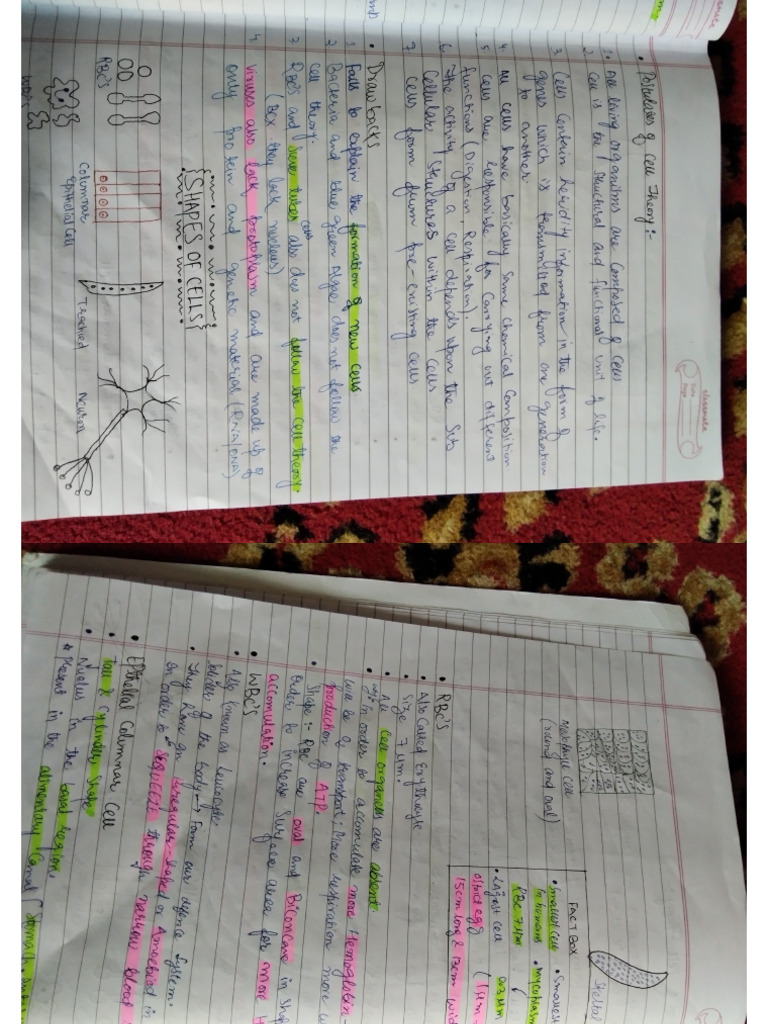 classmate
Date
Page
• Postulates of Cell Theory :-
1. All living organisms are Composed of Cells
2. Cell is the structural and functional unit of life.
3. Cells contain heridity information in the form of
genes which is transmitted from one generation
to another.
4. All cells have basically same chemical Composition
5. Cells are responsible for Carrying out different
functions (Digestion, Respiration).
6. The activity of a cell depends upon the Sub
Cellular Structures within the Cells
7. Cells form from pre-existing cells
• Drawbacks
1 Fails to explain the formation of new cells
2 Bacteria and blue green Algae does not follow the
cell theory.
3 RBC's and sieve tubes cells also does not follow the cell theory.
(Bcz they lack nucleus)
4 Viruses also lack protoplasm and are made up of
only protein and genetic material (RNA/DNA)
{SHAPES OF CELLS}
RBC's
Columnar
Epithelial Cell
Tracheid
Neuron
WBC's
Mesophyll Cell
(round and oval)
FACT BOX
• Smallest cell
in humans
RBC 7μm
• Smallest
• Mycoplasm
0.3μm
• Largest cell
ostrich egg
15cm long & 13cm wid
• RBC's
• Also Called Erythrocyte
• Size 7μm.
• All cell organells are absent.
In order to accumulate more Hemoglobin-
will be O2 transport : More respiration more w
production of ATP.
• Shape :- RBC are oval and Biconcave in shap
order to increase surface area for more H
accumulation.
• WBC's
• Also known as leucocyte.
Soldier of the body → Form our defence System.
• They have an irregular-shaped or Amoeboid in
in order to SEQUEEZE through narrow blood
• Epithelial Columnar Cell
• Tall & cylinder shape
• Nucleus in the basal region.
* Present in the alimentary Canal (Stomach,